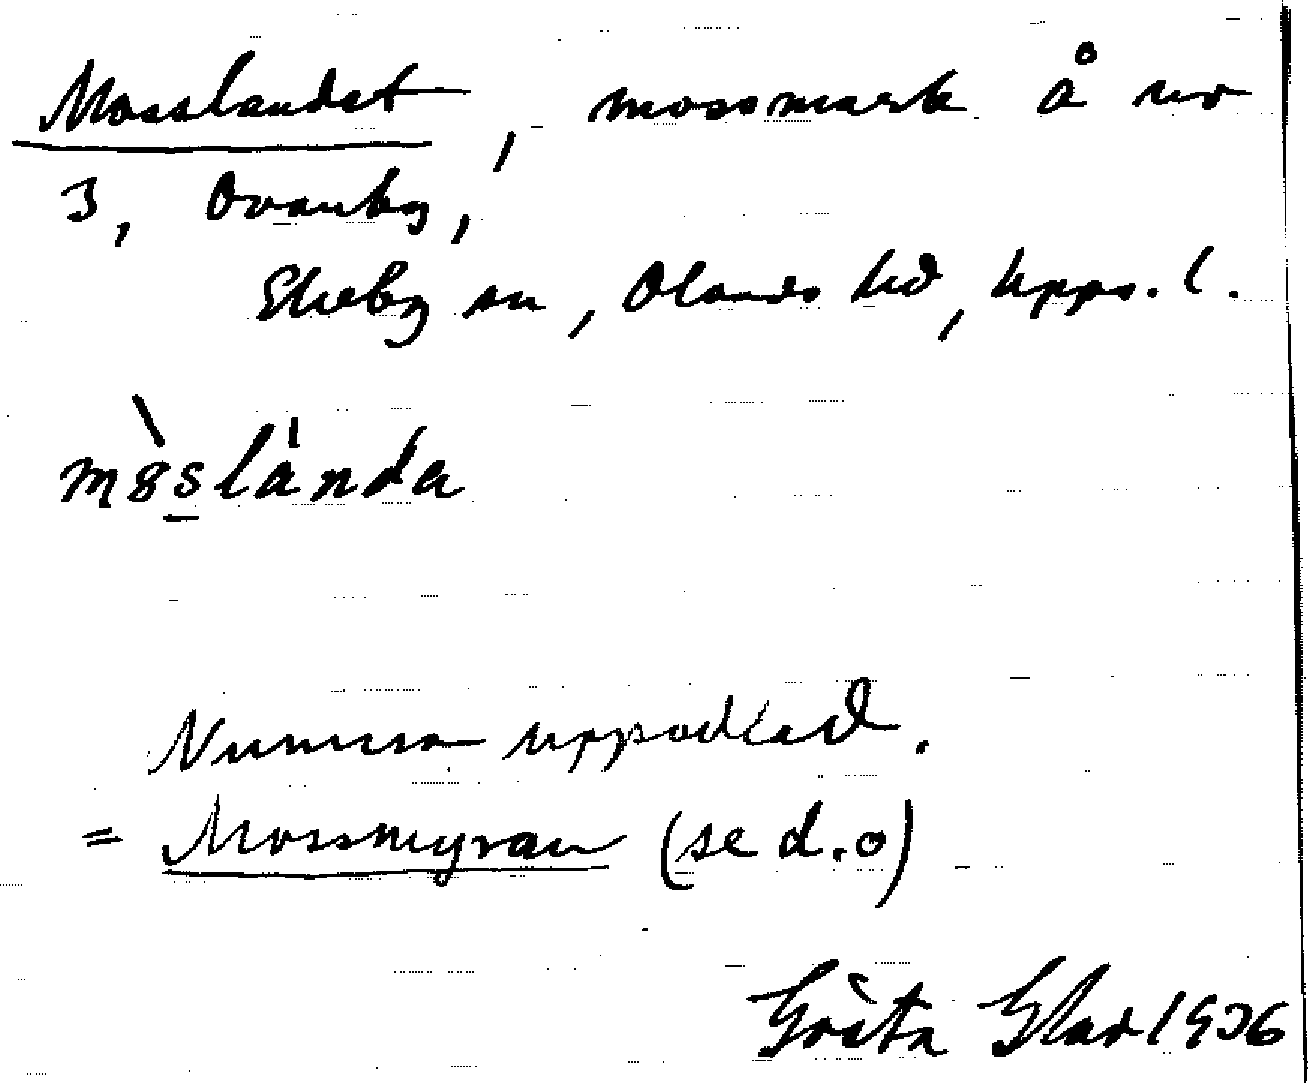 Mosslandet, mossmark å nr
3, Ovanby,
Ekeby sn, Olands hd, Upps. l.
mòslánda
Numera uppodlad.
= Mossmyran (se d.o)
Greta Glad 1936